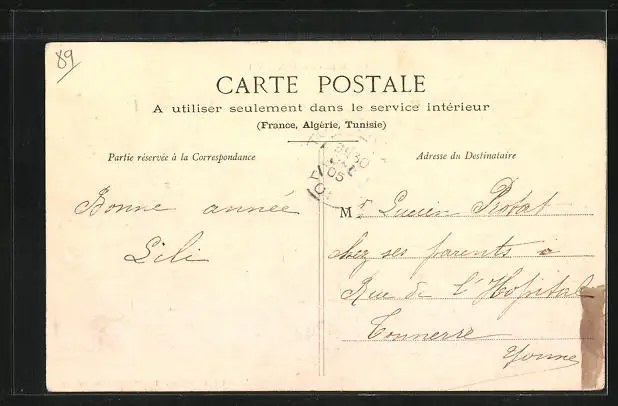 89
CARTE POSTALE
A utiliser seulement dans le service intérieur
(France, Algérie, Tunisie)
Partie réservée à la Correspondance
Adresse du Destinataire
Bonne année
Lili
Mr. Lucien Protat
chez ses parents
Rue de l'Hopital
Tonnerre
Yonne
05